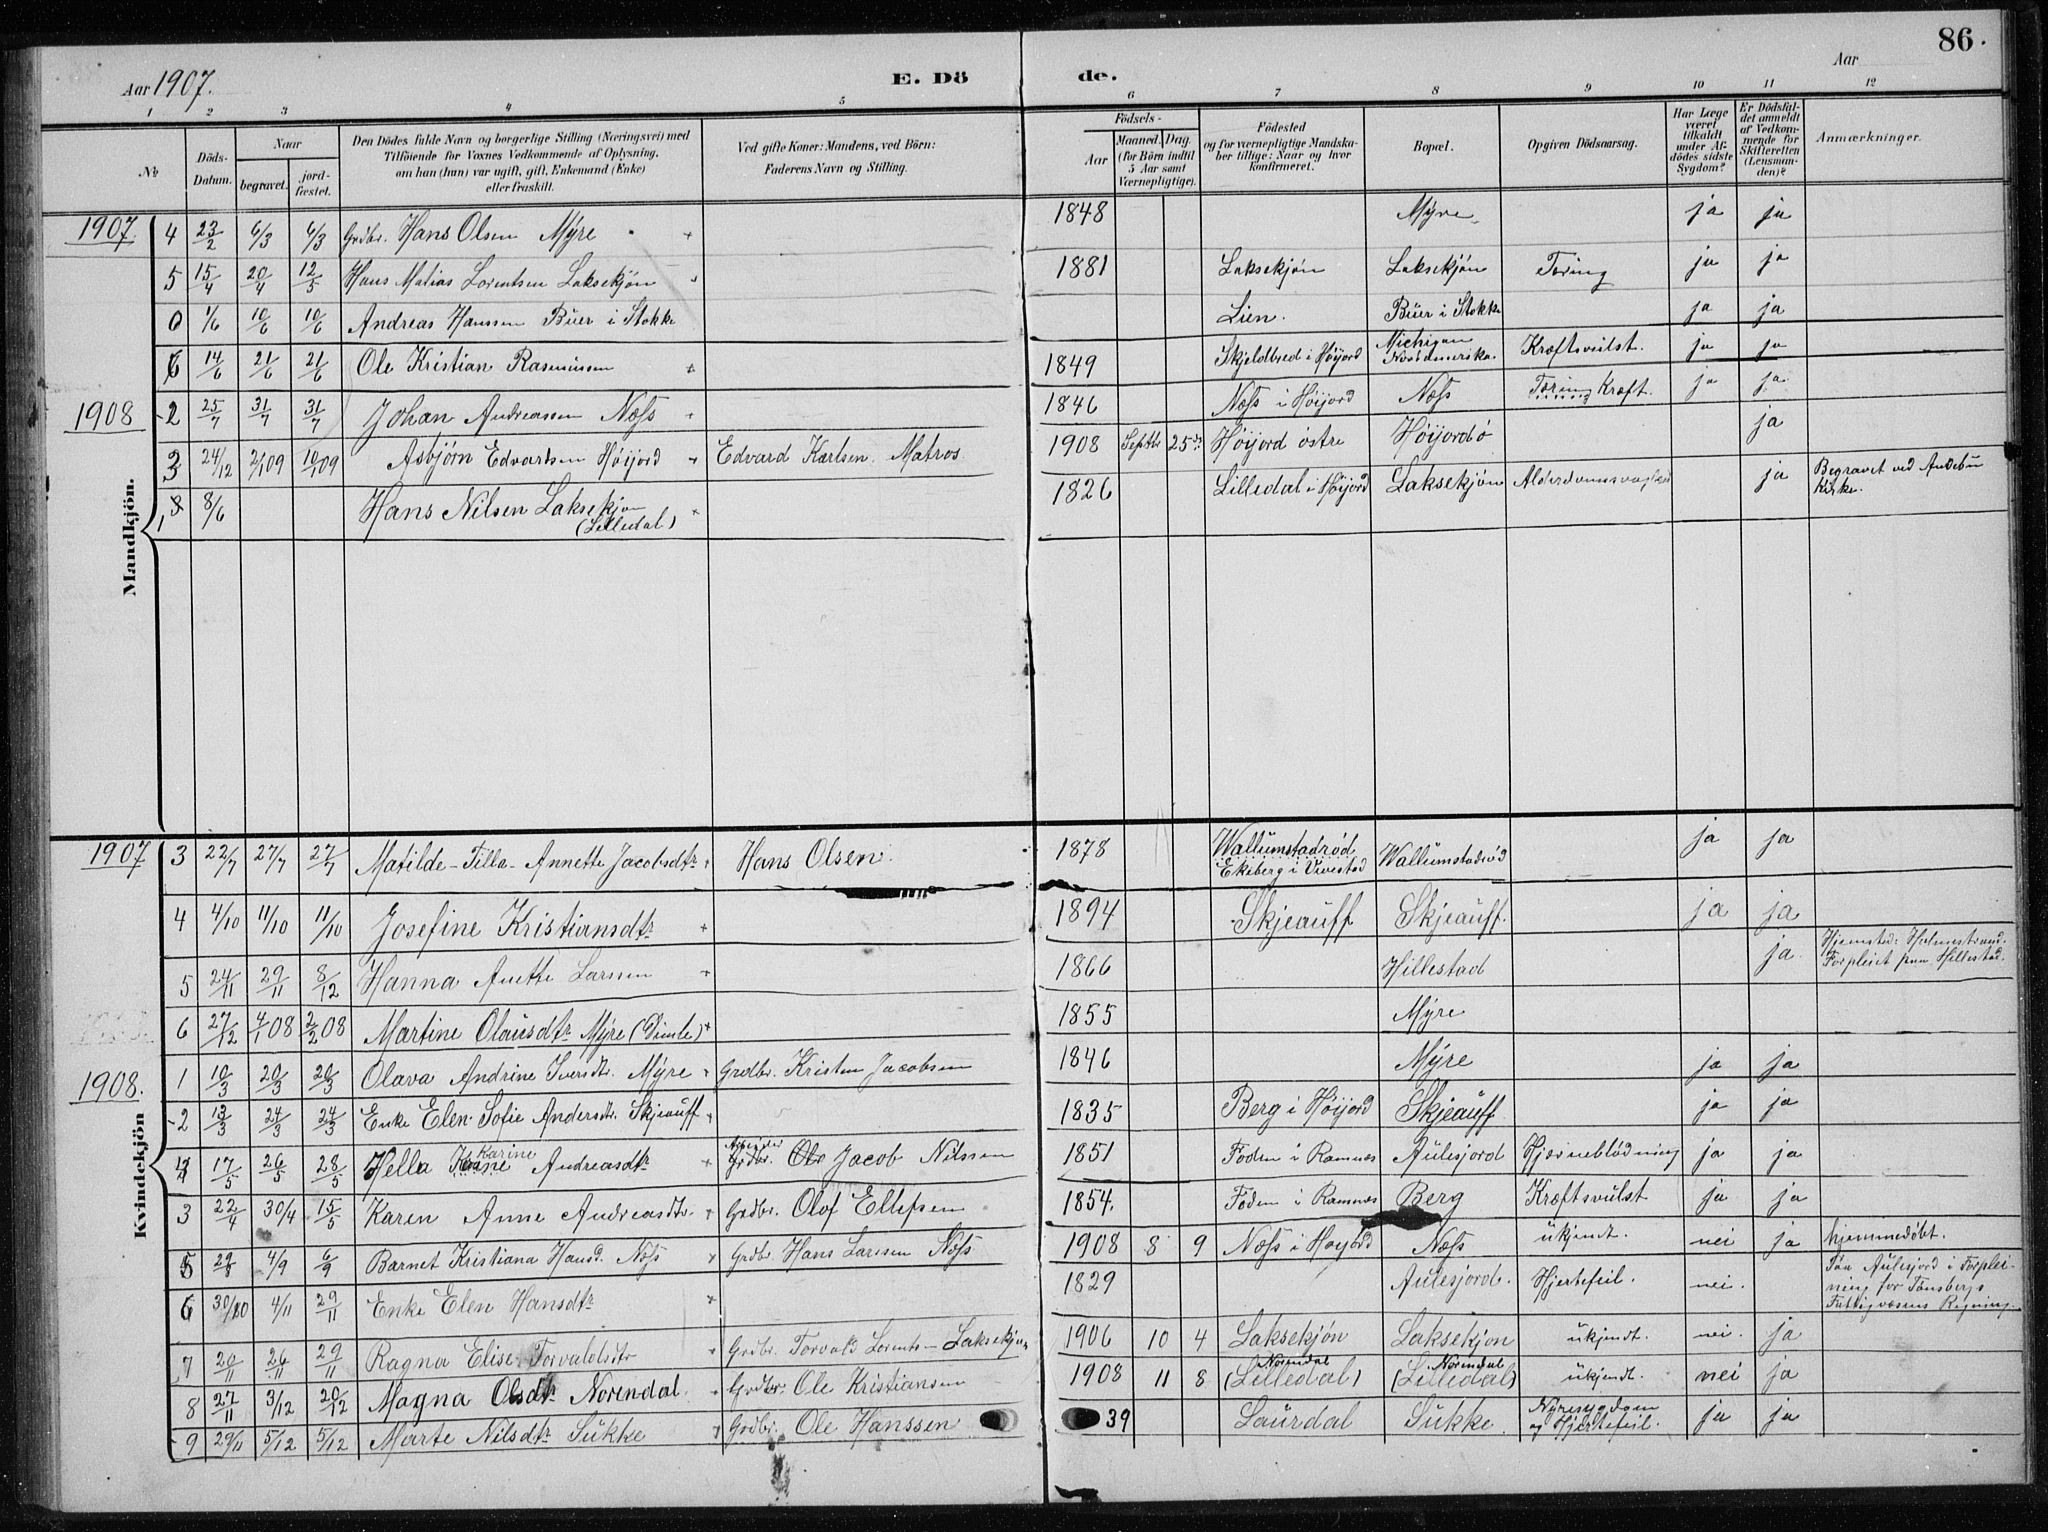 86.
Aar 1907. E. Dö de. Aar
1 2 3 4 5 6 7 8 9 10 11 12
No
Döds-Datum.
Naar
begravet.
jord-fæstet.
Den Dödes fulde Navn og borgerlige Stilling (Næringsvei) med
Tilföiende for Voxnes Vedkommende af Oplysning,
om han (hun) var ugift, gift, Enkemand (Enke)
eller fraskilt.
Ved gifte Koner: Mandens, ved Börn:
Faderens Navn og Stilling.
Födsels-
Aar
Maaned. Dag.
(for Börn indtil
5 Aar samt
Værnepligtige).
Födested
og for værnepligtige Mandska-
ber tillige: Naar og hvor
konfirmeret.
Bopæl.
Opgiven Dödsaarsag.
Har Læge
været
tilkaldt
under Af-
dödes sidste
Sygdom?
Er Dödsfal-
det anmeldt
af Vedkom-
mende for
Skifteretten
(Lensman-
den)?
Anmærkninger.
Mandkjön.
1907 4 23/2 6/3 6/3 Grdbr. Hans Olsen Mÿre 1848 Mÿre ja ja
5 15/4 20/4 12/5 Hans Matias Lorentsen Laksekjøn 1881 Laksekjøn Laksekjøn Tæring ja ja
0 1/6 10/6 10/6 Andreas Hanssen Büer i Stokke Lien. Büer i Stokke ja ja
6 14/6 21/6 21/6 Ole Kristian Rasmussen 1849 Skjeldbred i Høijord Michigan Nordamerika. Kræftsvulst. ja ja
1908 2 25/7 31/7 31/7 Johan Andreassen Næss 1846 Næss i Høijord Næss Tæring Kræft. ja ja
3 24/12 2/1 09 10/1 09 Asbjørn Edvartsen Høijord Edvard Karlsen Matros. 1908 Septbr 25de Høijord østre Høijord ø ja
1 8/6 Hans Nilsen Laksekjøn (Lilledal) 1826 Lilledal i Høijord Laksekjøn ja Begravet ved Andebu Kirke.
Kvindekjön
1907 3 22/7 27/7 27/7 Matilde-Tilla-Annette Jacobsdtr Hans Olsen. 1878 Wallumstadrød Ekeberg i Vivestad Wallumstadrød ja ja
4 4/10 11/10 11/10 Josefine Kristiansdtr 1894 Skjeauff Skjeauff. ja ja
5 24/11 29/11 8/12 Hanna Anette Larssen 1866 Hillestad ja Hjemsted: Holmestrand. Forpleiet paa Hillestad.
6 27/12 4/1 08 2/2 08 Martine Olausdtr Mÿre (Dimle) 1855 Mÿre
1908. 1 10/3 20/3 20/3 Olava Andrine Iversdtr. Mÿre Grdbr. Kristen Jacobsen 1846 Mÿre ja ja
2 13/3 24/3 24/3 Enke Elen Sofie Andersdtr. Skjeauff 1835 Berg i Høijord Skjeauff ja ja
4 17/5 26/5 28/5 Hella Karine Andreasdtr Arbeider Grdbr. Ole Jacob Nilssen 1851 Foden i Ramnæs Aulesjord Hjerneblødning ja ja
3 22/4 30/4 15/5 Karen Anne Andreasdtr. Grdbr. Olof Ellefsen 1854. Foden i Ramnæs Berg Kræftsvulst ja ja
5 29/8 4/9 6/9 Barnet Kristiana Hansd. Næss Grdbr. Hans Larssen Næss 1908 8 9 Næss i Høijord Næss ukjendt. nei ja hjemmedøbt.
6 30/10 4/11 29/11 Enke Elen Hansdtr 1829 Aulesjord. Hjertefeil. nei. Paa Aulesjord i Forpleining for Tønsbergs Fattigvæsens Regning.
7 20/11 26/11 29/11 Ragna Elise Torvaldsdtr Grdbr. Torvald Lorents- Laksekjøn 1906 10 4 Laksekjøn Laksekjøn ukjendt. nei. ja
8 27/11 3/12 20/12 Magna Olsdtr Norendal. Grdbr. Ole Kristiansen 1908 11 8 Norendal (Lilledal) Norendal (Lilledal) ukjendt. nei ja
9 29/11 5/12 5/12 Marte Nilsdtr Sukke Grdbr. Ole Hanssen 39 Laurdal Sukke Nyresygdom og Hjertefeil. ja ja